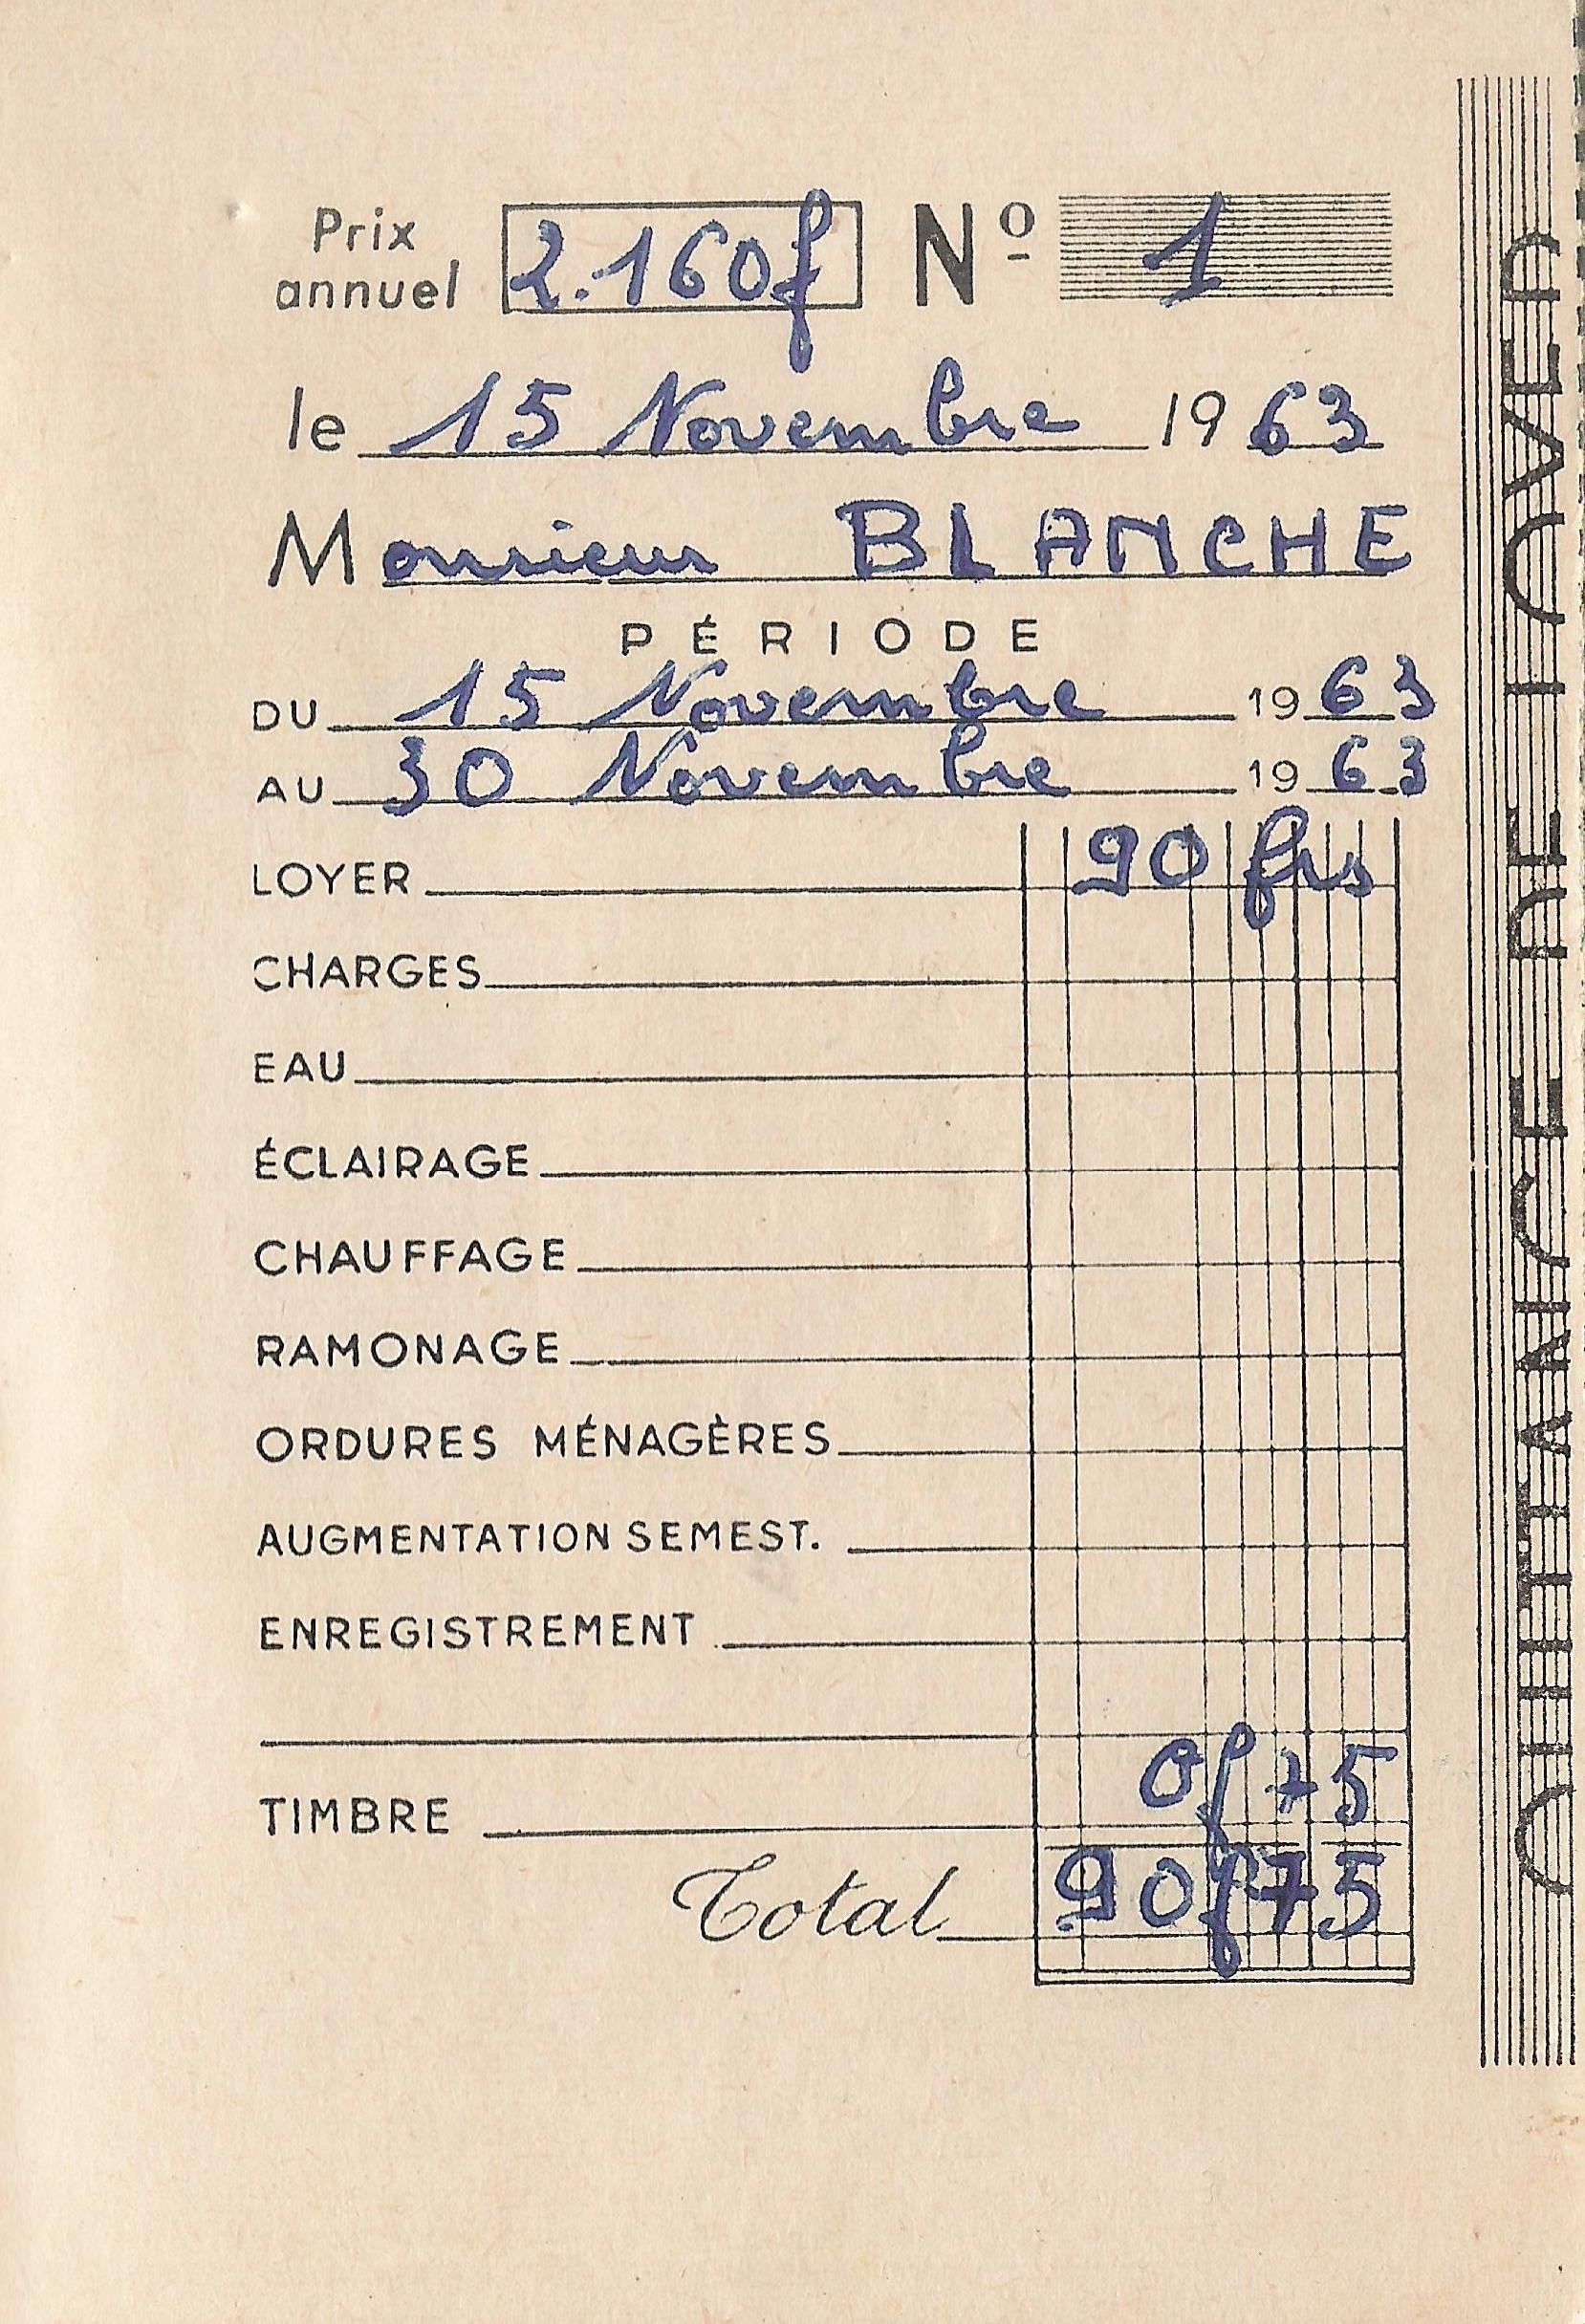 Prix annuel 2.160f Nº 1
le 15 Novembre 1963
Monsieur BLANCHE
PÉRIODE
DU 15 Novembre 1963
AU 30 Novembre 1963
LOYER 90 frs
CHARGES
EAU
ÉCLAIRAGE
CHAUFFAGE
RAMONAGE
ORDURES MÉNAGÈRES
AUGMENTATION SEMEST.
ENREGISTREMENT
TIMBRE 0f75
Total 90f75
QUITTANCE DE LOYER